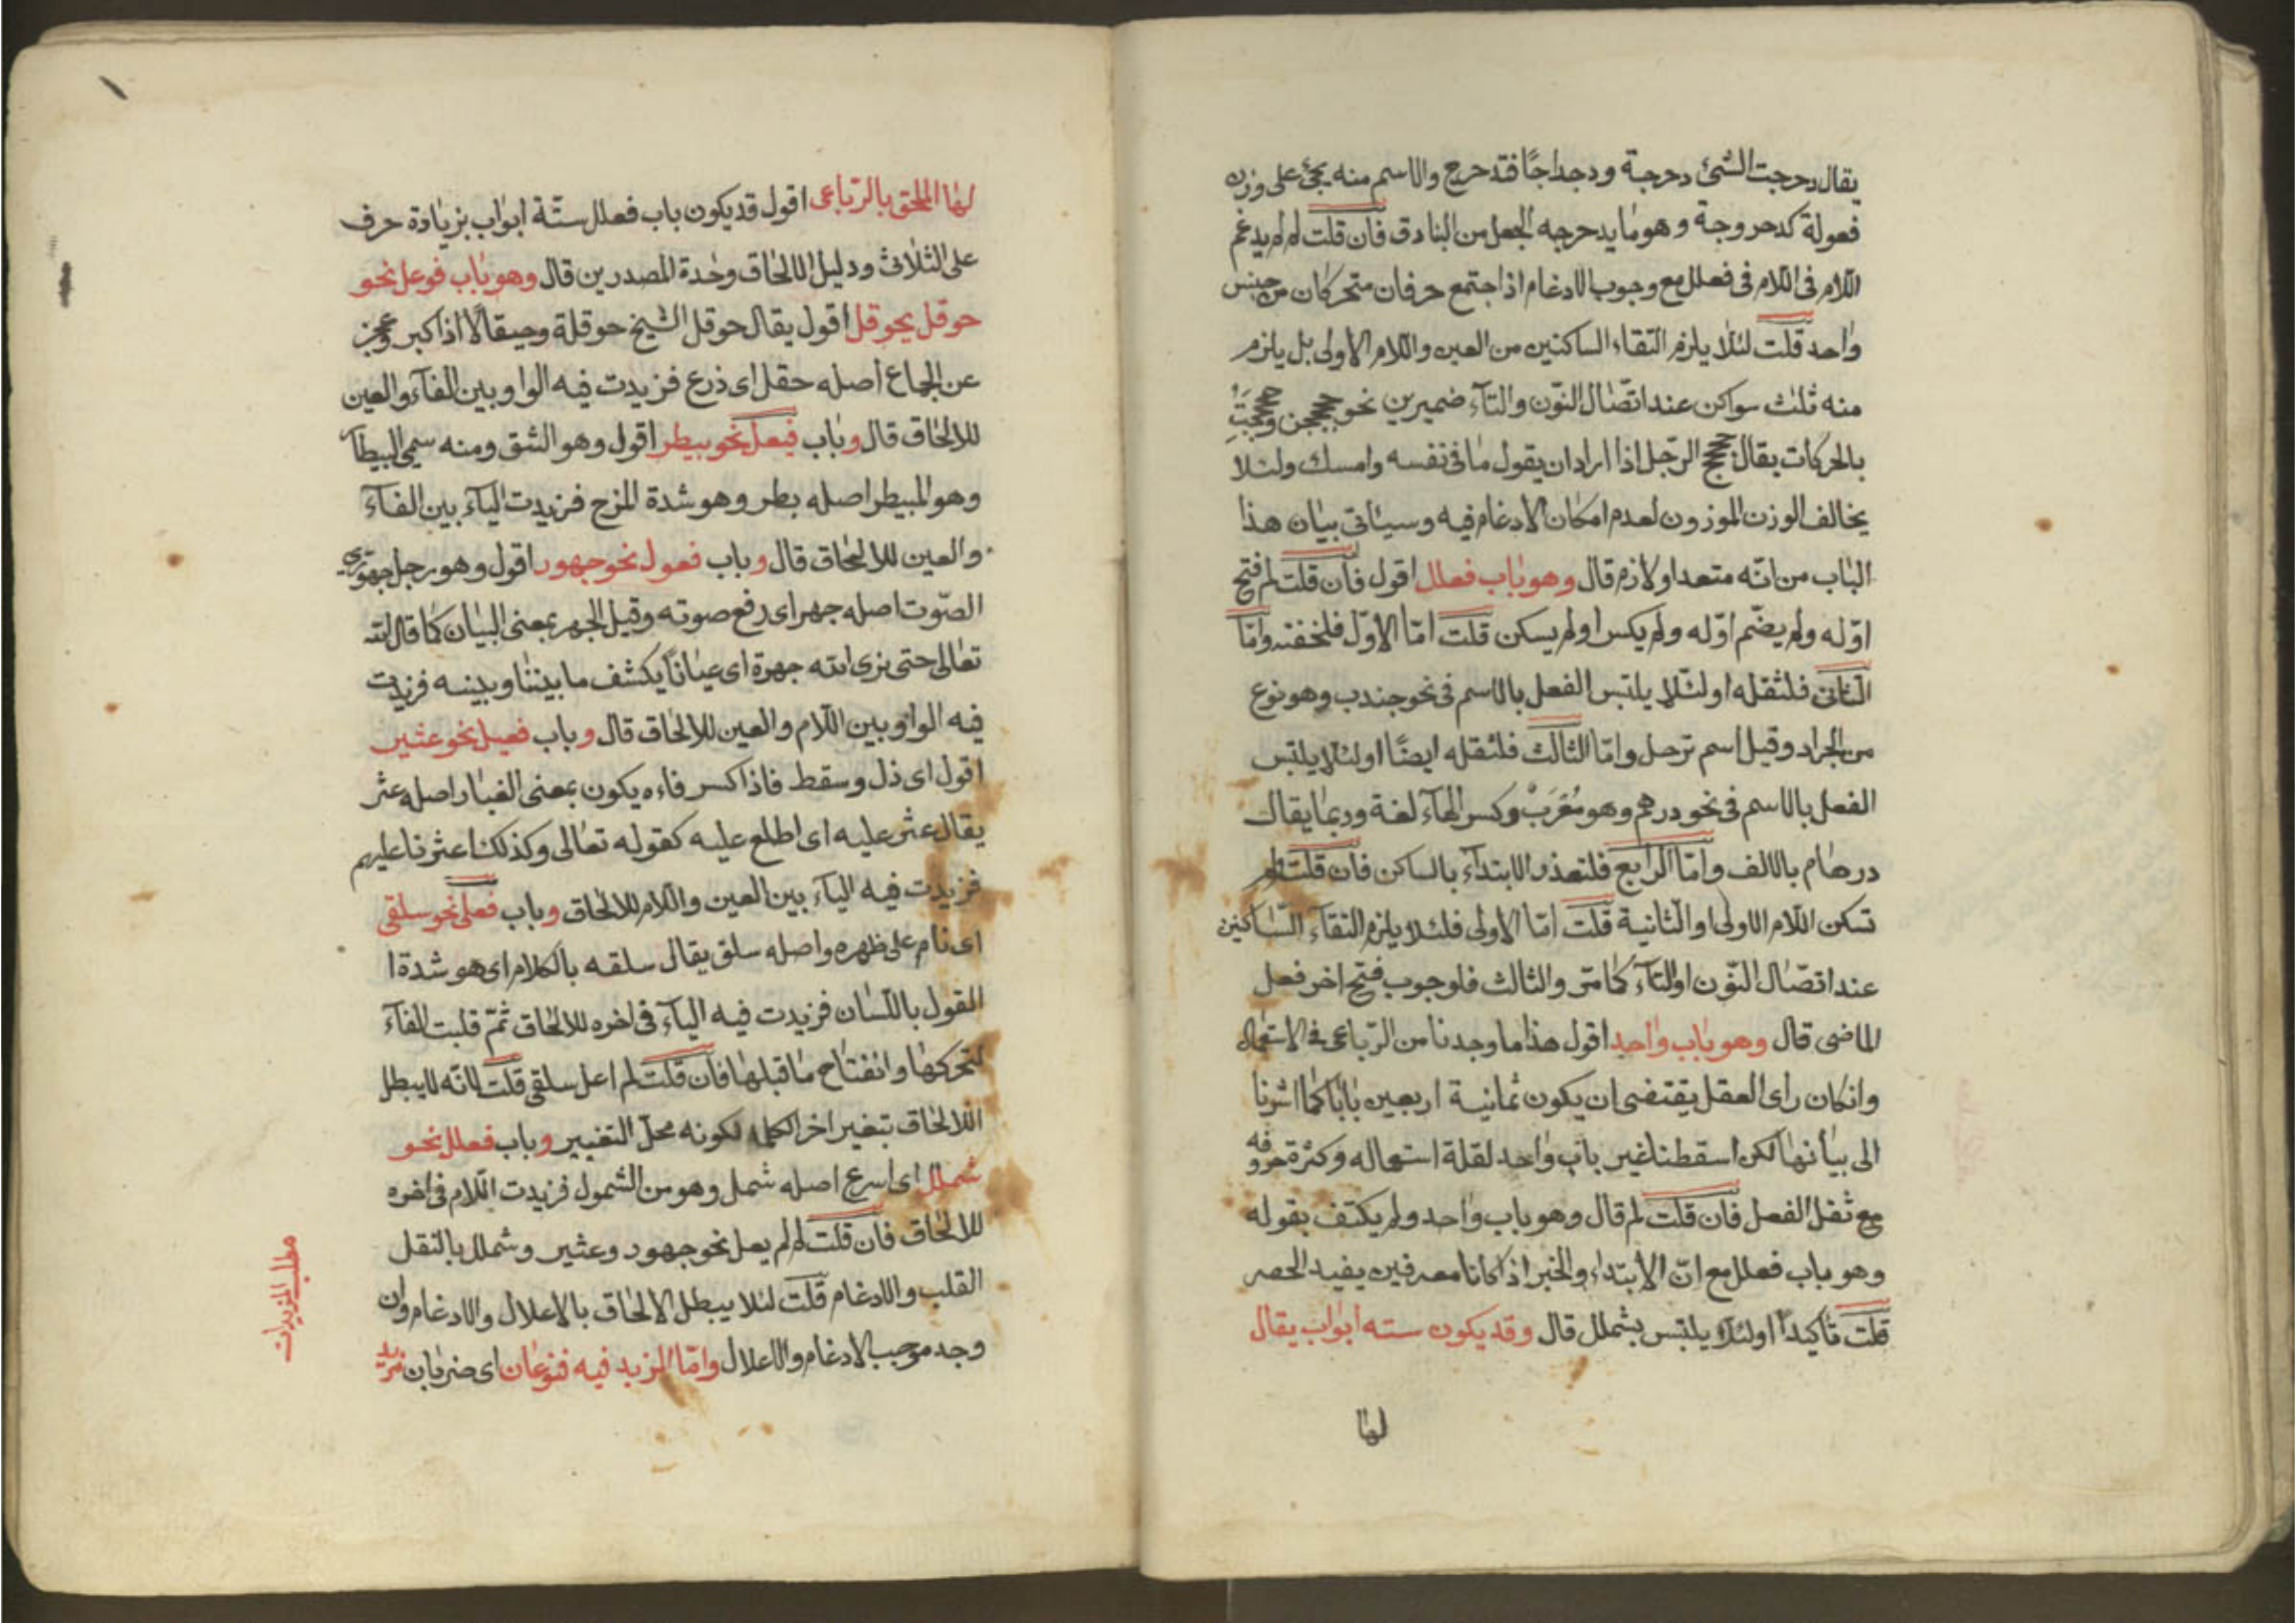 يقال دحرجت الشئ دحرجة ودحراجًا فتدحرج والاسم منه يجئ على وزن
فعولة كدحروجة وهو ما يدحرجه الجعل من البنادق فان قلت لم لم يدغم
اللام فى اللام فى فعلل مع وجوب الادغام اذا اجتمع حرفان متحركان من جنس
واحد قلت لئلا يلزم التقاء الساكنين من العين واللام الاولى بل يلزم
منه ثلث سواكن عند اتصال النّون والتآء ضميرين نحو
بالحركات يقال الرّجل اذا اراد ان يقول ما فى نفسه وامسك ولئلا
يخالف الوزن الموزون لعدم امكان الادغام فيه وسيأتى بيان هذا
الباب من انّه متعد او لازم قال وهو باب فعلل اقول فان قلت لم فتح
اوّله ولم يضّم اوّله ولم يكسر او لم يسكن قلت امّا الاوّل فلخفته وامّا
الثانى فلثقله او لئلا يلتبس الفعل بالاسم فى نحو جندب وهو نوع
من الجراد وقيل اسم ترحل وامّا الثالث فلثقله ايضًا او لئلا يلتبس
الفعل بالاسم فى نحو درهم وهو مُعَرَبْ وكسر الهآء لغة وربما يقال
درهام بالالف وامّا الرابع فلتعذر الابتدآء بالساكن فان قلت لم
تسكن اللام الاولى او الثانية قلت امّا الاولى فلئلا يلزم التقآء السّاكنين
عند اتصّال النّون او التآء كما مرّ والثالث فلوجوب فتح اخر فعل
الماضى قال وهو باب واحد اقول هذا ما وجدنا من الرّباعى فى الاستعمال
وانكان راى العقل يقتضى ان يكون ثمانية اربعين بابا كما اشرنا
الى بيانها لكن اسقطنا غير باب واحد لقلة استعماله وكثرة حروفه
مع ثقل الفعل فان قلت لم قال وهو باب واحد ولم يكتف بقوله
وهو باب فعلل مع انّ الابتداء والخبر اذا كانا معرفين يفيد الحصر
قلت تأكيدًا او لئلا يلتبس بشملل قال وقد يكون سته ابواب يقال
لها
لها الملحق بالرّباعى اقول قد يكون باب فعلل ستّة ابواب بزيادة حرف
على الثلاثى ودليل الالحاق وحدة المصدرين قال وهو باب فوعل نحو
حوقل يحوقل اقول يقال حوقل الشيخ حوقلة وحيقالًا اذا كبر وعجز
عن الجماع اصله حقل اى ذرع فزيدت فيه الواو بين الفآء والعين
للالحاق قال وباب فيعل نحو بيطر اقول وهو الشق ومنه سمى البيطآ
وهو المبيطر اصله بطر وهو شدة المزح فزيدت اليآء بين الفآء
والعين للالحاق قال وباب فعول نحو جهور اقول وهو رجل جهورى
الصّوت اصله جهر اى رفع صوته وقيل الجهر بمعنى البيان كما قال الله
تعالى حتى نرى الله جهرة اى عيانًا يكشف ما بيننا وبينه فزيدت
فيه الواو بين اللام والعين للالحاق قال وباب فعيل نحو عثير
اقول اى ذل وسقط فاذا كسر فاءه يكون بمعنى الغبار اصله عثر
يقال عثر عليه اى اطلع عليه كقوله تعالى وكذلك اعثرنا عليهم
فزيدت فيه اليآء بين العين واللام للالحاق وباب فعلى نحو سلقى
اى نام على ظهره واصله سلق يقال سلقه بالكلام اى هو شدة ا
القول باللسان فزيدت فيه اليآء فى اخره للالحاق ثمّ قلبت الفآء
لتحركها وانفتاح ما قبلها فان قلت لم اعل سلقى قلت لانّه لا يبطل
اللالحاق بتغير اخر الكلمة لكونه محلّ التغيير وباب فعلل نحو
شملل اى اسرع اصله شمل وهو من الشمول فزيدت اللام فى اخره
للالحاق فان قلت لم لم يعل نحو جهور وعثير وشملل بالنقل
القلب والادغام قلت لئلا يبطل الالحاق بالاعلال والادغام وان
وجد موجب الادغام والاعلال وامّا المزيد فيه فنوعان اى ضربان مزيد
مطلب المزيدات